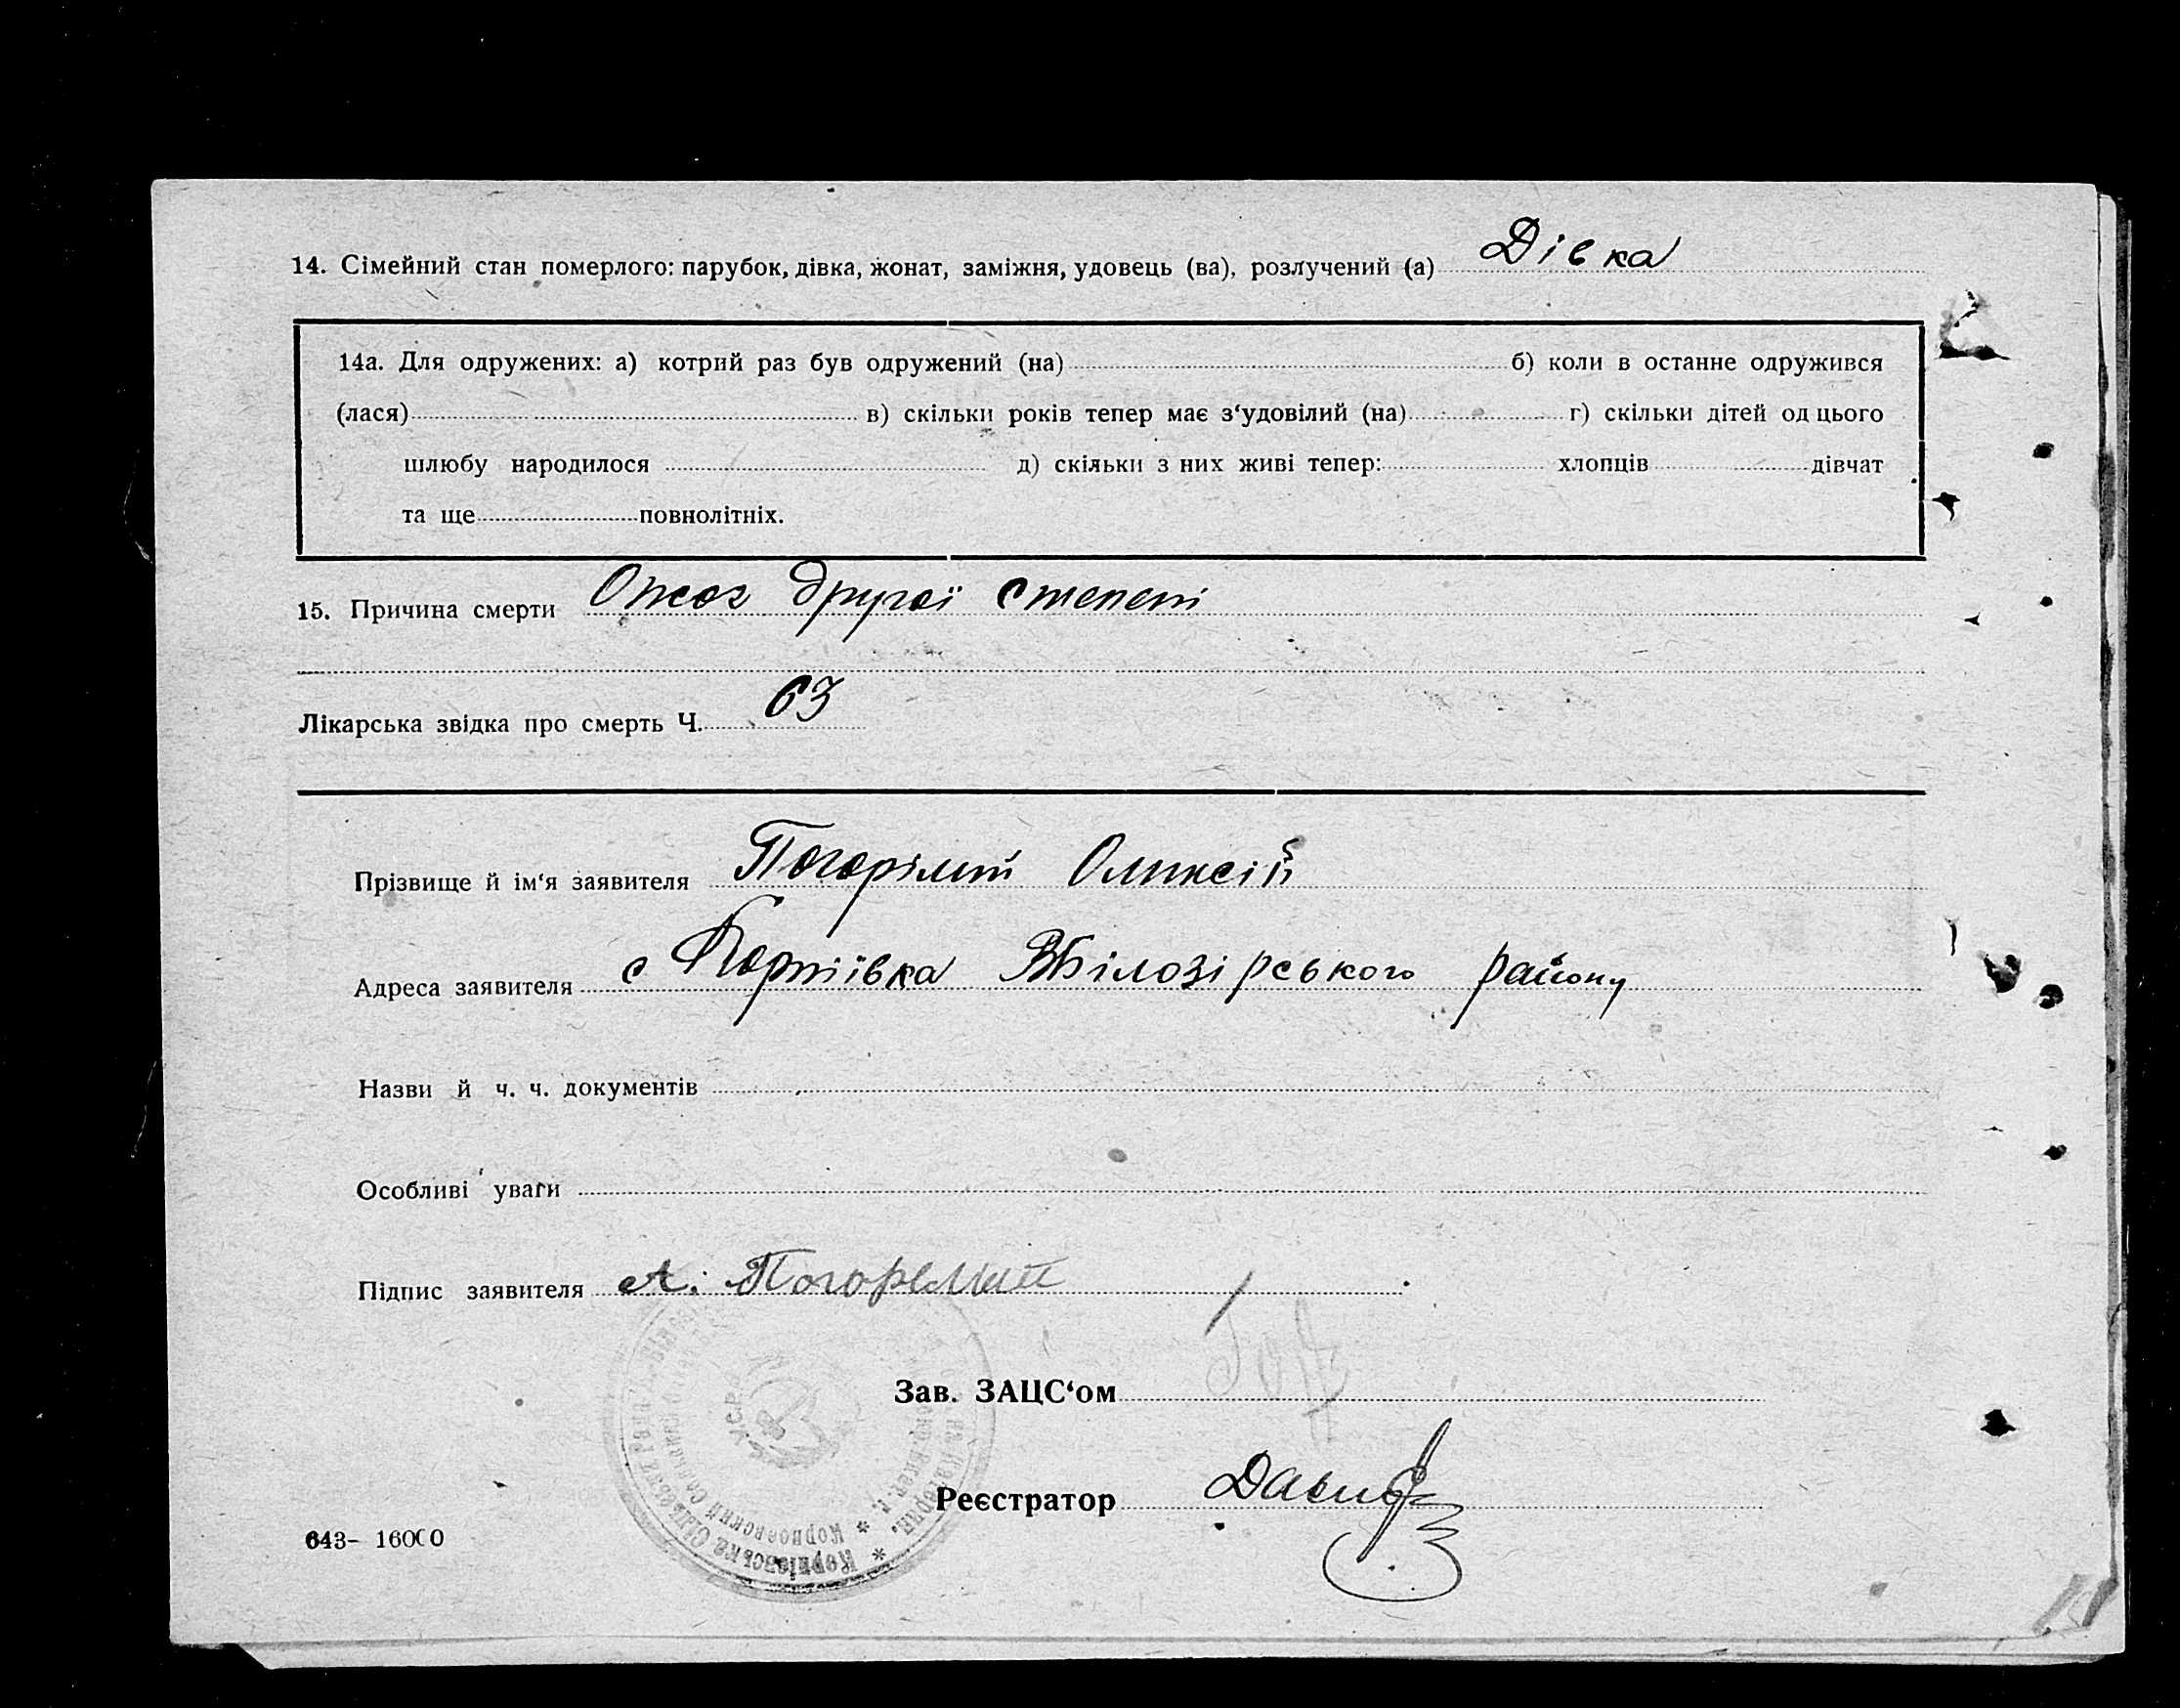 14. Сімейний стан померлого: парубок, дівка, жонат, заміжня, удовець (ва), розлучений (а) Дівка
14а. Для одружених: а) котрий раз був одружений (на) б) коли в останне одружився
(лася) в) скільки років тепер має з‘удовілий (на) г) скільки дітей од цього
шлюбу народилося д) скільки з них живі тепер: хлопців дівчат
та ще повнолітніх.
15. Причина смерти Ожог другої степені
Лікарська звідка про смерть Ч. 63
Прізвище й ім‘я заявителя Погорілий Оликсій
Адреса заявителя с Вбілозірського району
Назви й ч. ч. документів
Особливі уваги
Підпис заявителя А. Погорелый
Зав. ЗАЦС‘ом
Реєстратор
643– 16000